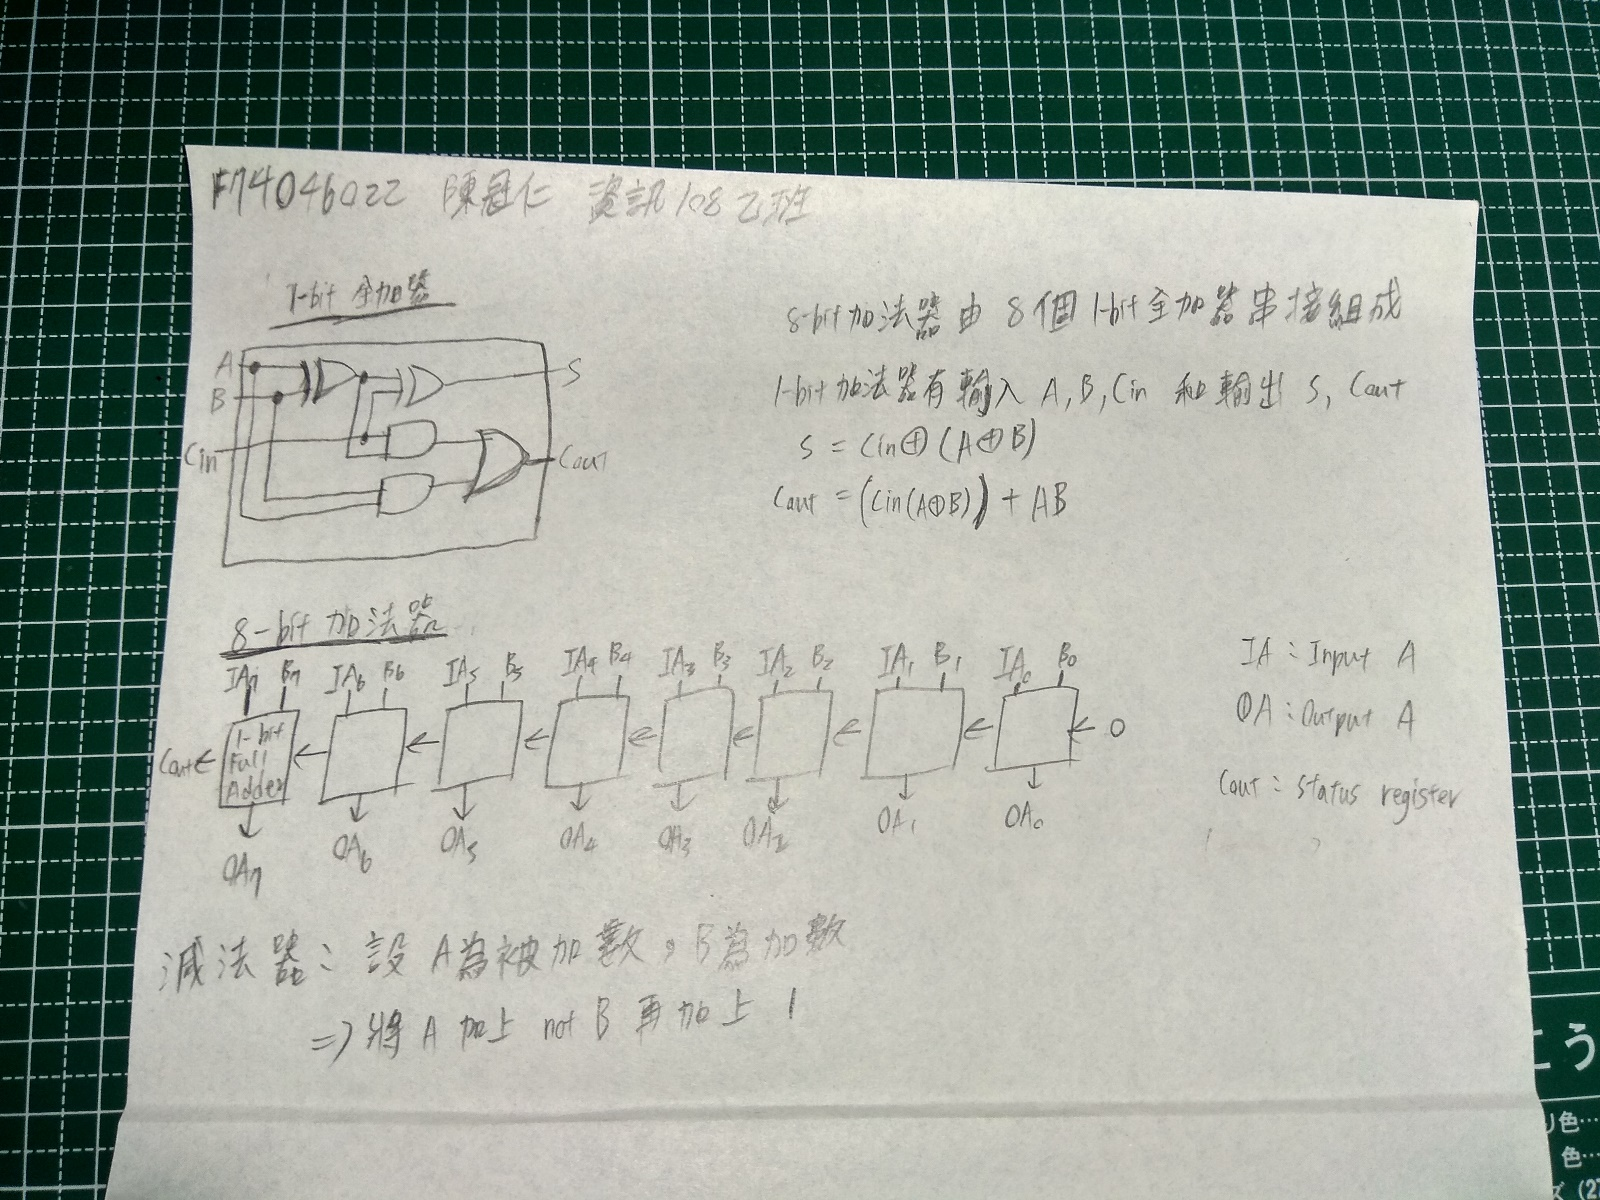 F74046022 陳冠仁 資訊108乙班
1-bit 全加器
A
B
Cin
S
Cout
8-bit加法器由 8個 1-bit全加器串接組成
1-bit加法器有輸入 A, B, Cin 和輸出 S, Cout
S = Cin⊕(A⊕B)
Cout = (Cin(A⊕B)) + AB
8-bit 加法器
IA7 B7 IA6 B6 IA5 B5 IA4 B4 IA3 B3 IA2 B2 IA1 B1 IA0 B0
Cout ← 1-bit Full Adder ← ← ← ← ← ← ← ← 0
OA7 OA6 OA5 OA4 OA3 OA2 OA1 OA0
IA : Input A
OA : Output A
Cout : status register
減法器：設 A為被加數，B為加數
=> 將 A 加上 not B 再加上 1
こう
り色…
色…
ズ (2